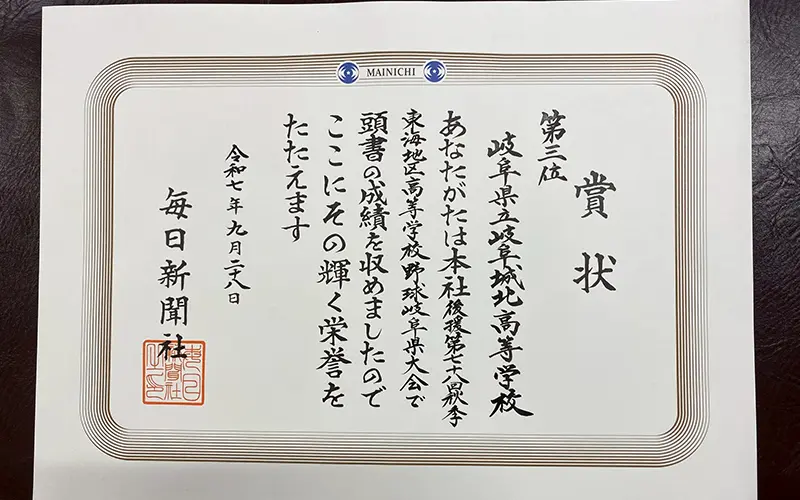 MAINICHI
賞状
第三位
岐阜県立岐阜城北高等学校
あなたがたは本社後援第七十八回秋季
東海地区高等学校野球岐阜県大会で
頭書の成績を収めましたので
ここにその輝く栄誉を
たたえます
令和七年九月二十八日
毎日新聞社